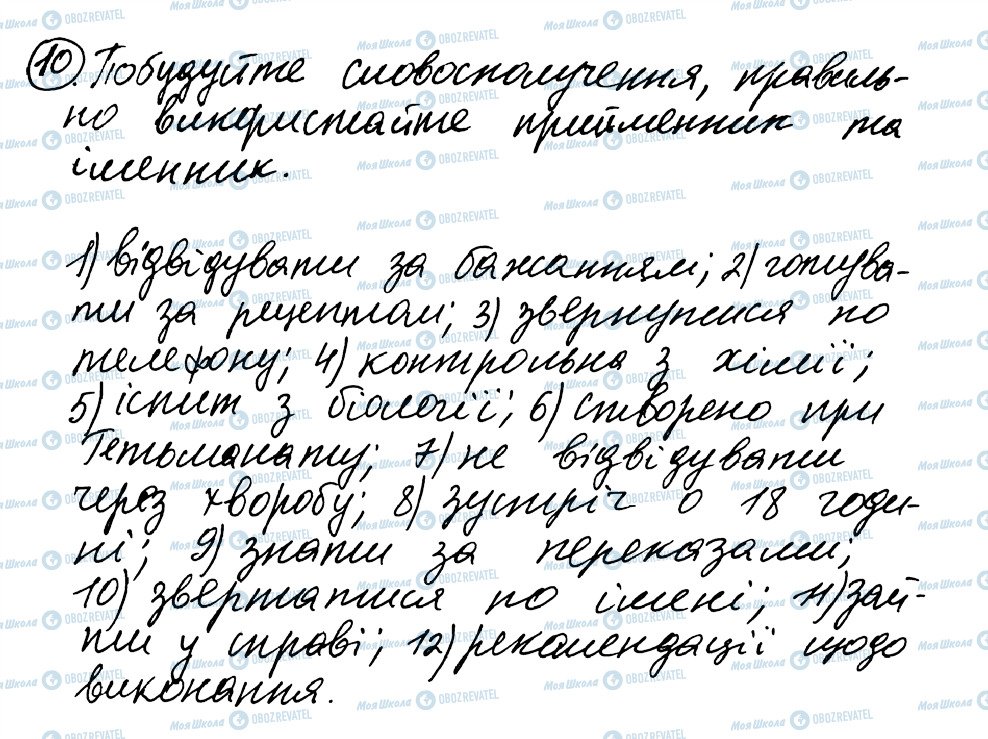 10. Побудуйте словосполучення, правиль-
но використайте прийменник та
іменник.
1) відвідувати за бажанням; 2) готува-
ти за рецептом; 3) звернутися по
телефону; 4) контрольна з хімії;
5) іспит з біології; 6) створено при
Гетьманату; 7) не відвідувати
через хворобу; 8) зустріч о 18 годи-
ні; 9) знати за переказами;
10) звертатися по імені; 11) зай-
ти у справі; 12) рекомендації щодо
виконання.